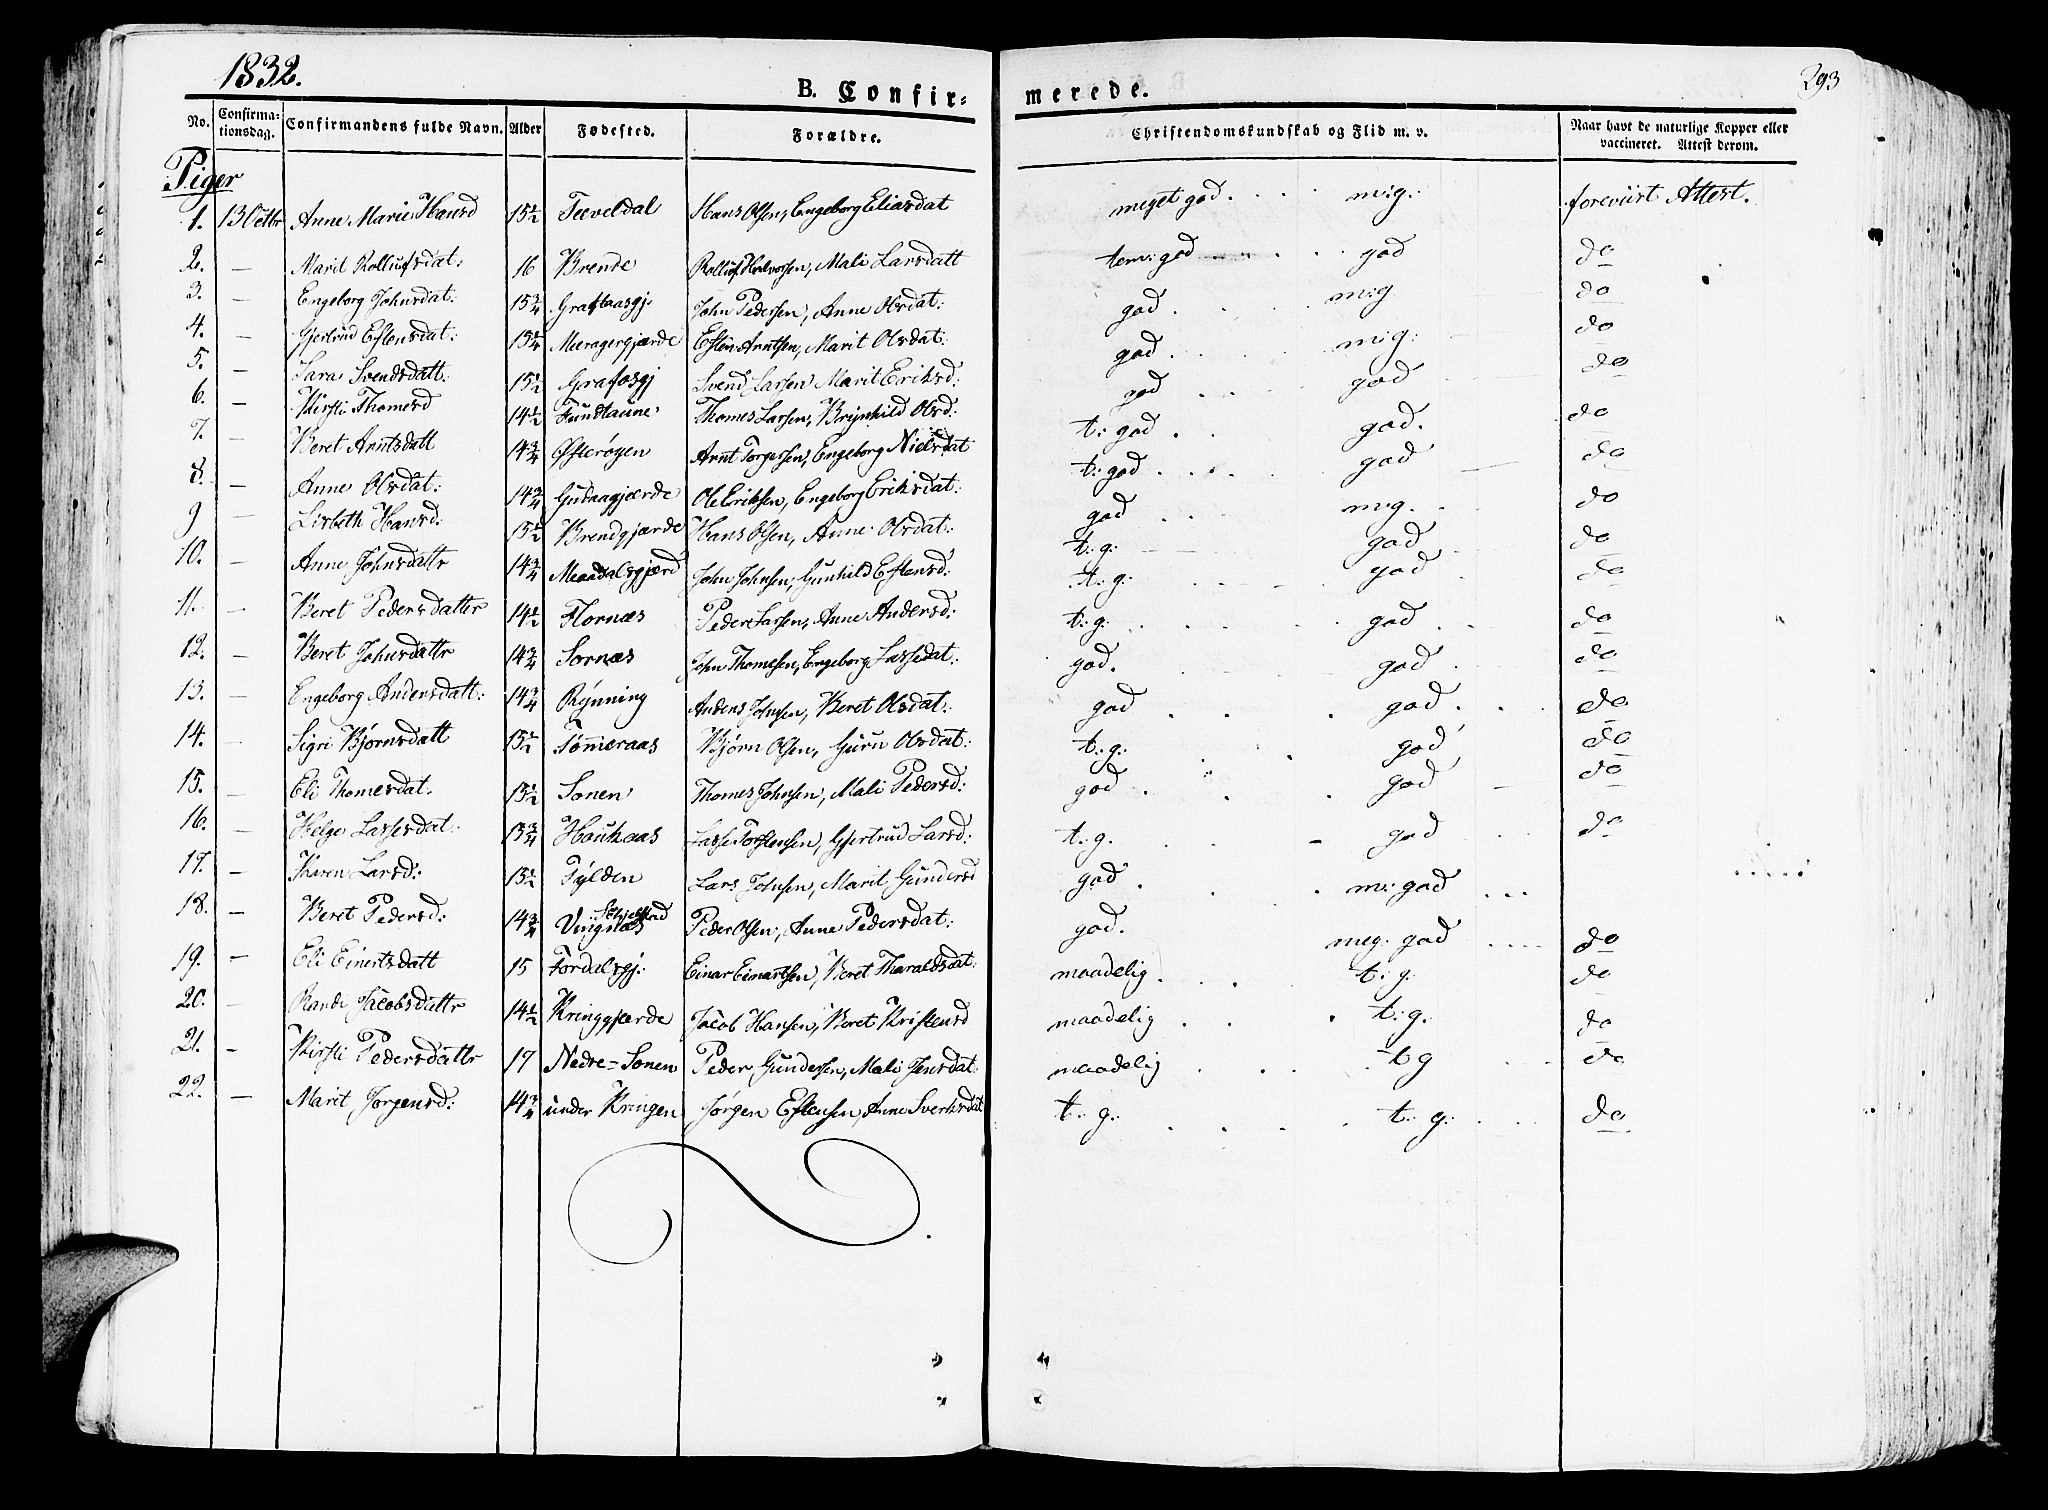 1832.
B. Confir- merede. 293
No. Confirmationsdag. Confirmandens fulde Navn. Alder Fødested. Forældre. Christendomskundskab og Flid m. v. Naar havt de naturlige Kopper eller vaccineret. Attest derom.
Piger
1. 13 Octbr Anne Marie Hansd 15½ Teveldal Hans Olsen, Engeborg Eliasdat meget god. m:g: foreviist Attest.
2. — Marit Rollufsdat: 16 Brende Rolluf Halvorsen, Mali Larsdatt tem: god god do
3. — Engeborg Johnsdat: 15¾ John Pedersen, Anne Olsdat: god m:g do
4. — Gjertrud Estensdat: Meeragergjærde Esten Arntsen, Marit Olsdat: god m:g: do
5. — Sara Svendsdatt: 15½ Grafosgj Svend Larsen Marit Eriksd: god god do
6. — Kirsti Thomesd 14½ Fundtaune Thomes Larsen, Brynhild Olsd: t: god god. do
7. — Beret Arntsdatt 14¾ Østerøyen Arnt Torgersen, Engeborg Nielsdat t: god god do
8. — Anne Olsdat: 14¾ Gudaagjærde Ole Eriksen, Engeborg Eriksdat: god m:g. do
9 — Lisbeth Hansd: 15½ Brendgjærde Hans Olsen, Anne Olsdat: t: g: god do
10. — Anne Johnsdattr 14¾ Meadalsgjærd John Johnsen, Gunhild Estensd: t: g: god do
11. — Beret Pedersdatter 14½ Flornæs Peder Larsen, Anne Andersd: t: g: god do
12. — Beret Johnsdattr 14¾ Sornæs John Thomesen, Engeborg Lassedat: god. god do
13. — Engeborg Andersdatt: 14¾ Rýnning Anders Johnsen, Beret Olsdat: god god. do
14. — Sigri Bjørnsdatt 15½ Tømmeraas Bjørn Olsen, Guru Olsdat: t: g: god do
15. — Eli Thomesdat. 15½ Sonen Thomes Johnsen, Mali Pedersd: god god do
16. — Helge Lassesdat: 15¾ Haukaas Lasse Torstensen, Gjertrud Larsd: t: g. god do
17. — Karen Larsd: 15½ Fylden Lars Johnsen, Marit Gundersd god m: god
18. — Beret Pedersd: 14¾ Vingnæs Peder Olsen, Anne Pedersdat: god. meg. god do
19. — Eli Einertsdatt 15 Fordalsgj: Einar Einartsen, Beret Tharaldsdat: maadelig t: g: do
20. — Randi Jacobsdattr 14½ Kringgjærde Jacob Hansen, Beret Kristensd maadelig t: g. do
21. — Kirsti Pedersdattr 17 Nedre=Sonen Peder Gundersen, Mali Jensdat: maadelig t: g do
22. — Marit Jørgensd: 14¾ under Kringen Jørgen Estensen, Anne Sverksdat t: g: t: g: do